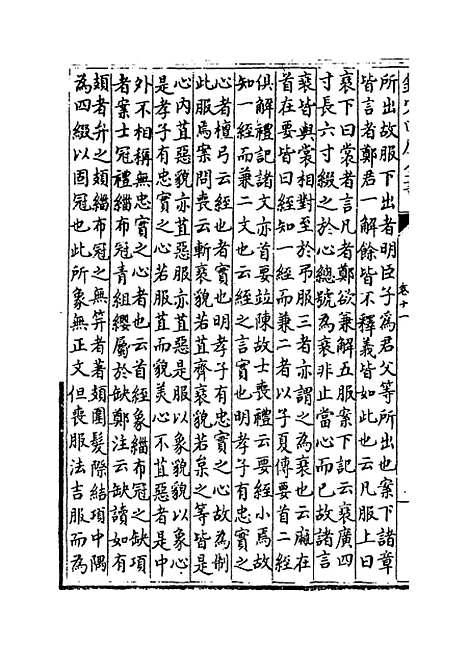 欽定四庫全書
卷十一
所出故服下出者明臣子為君父等所出也案下諸章
皆言者鄭君一解餘皆不釋義皆如此也云凡服上曰
衰下曰裳者言凡者鄭欲兼解五服案下記云衰廣四
寸長六寸綴之於心總號為衰非止當心而已故諸言
衰皆與裳相對至於弔服三者亦謂之為衰也云麻在
首在要皆曰絰知一絰而兼二者以子夏傳要首二絰
俱解禮記諸文亦首要竝陳故士喪禮云要絰小焉故
知一絰而兼二文也云絰之言實也明孝子有忠實之
心者檀弓云絰也者實也明孝子有忠實之心故為制
此服焉案問喪云斬衰貌若苴齊衰貌若枲之等皆是
心內苴惡貌亦苴惡服亦苴惡是服以象貌貌以象心
是孝子有忠實之心若服苴而貌美心不苴惡者是中
外不相稱無忠實之心者也云首絰象緇布冠之缺項
者案士冠禮緇布冠青組纓屬於缺鄭注云缺讀如有
頍者弁之頍緇布冠之無笄者著頍圍髮際結項中隅
為四綴以固冠也此所象無正文但喪服法吉服而為